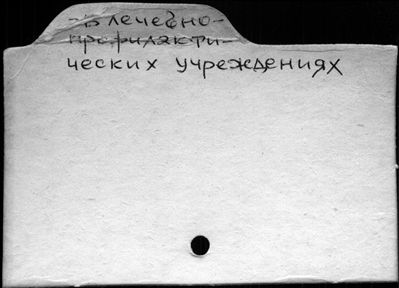 - в лечебно-
профилакти-
ческих учреждениях